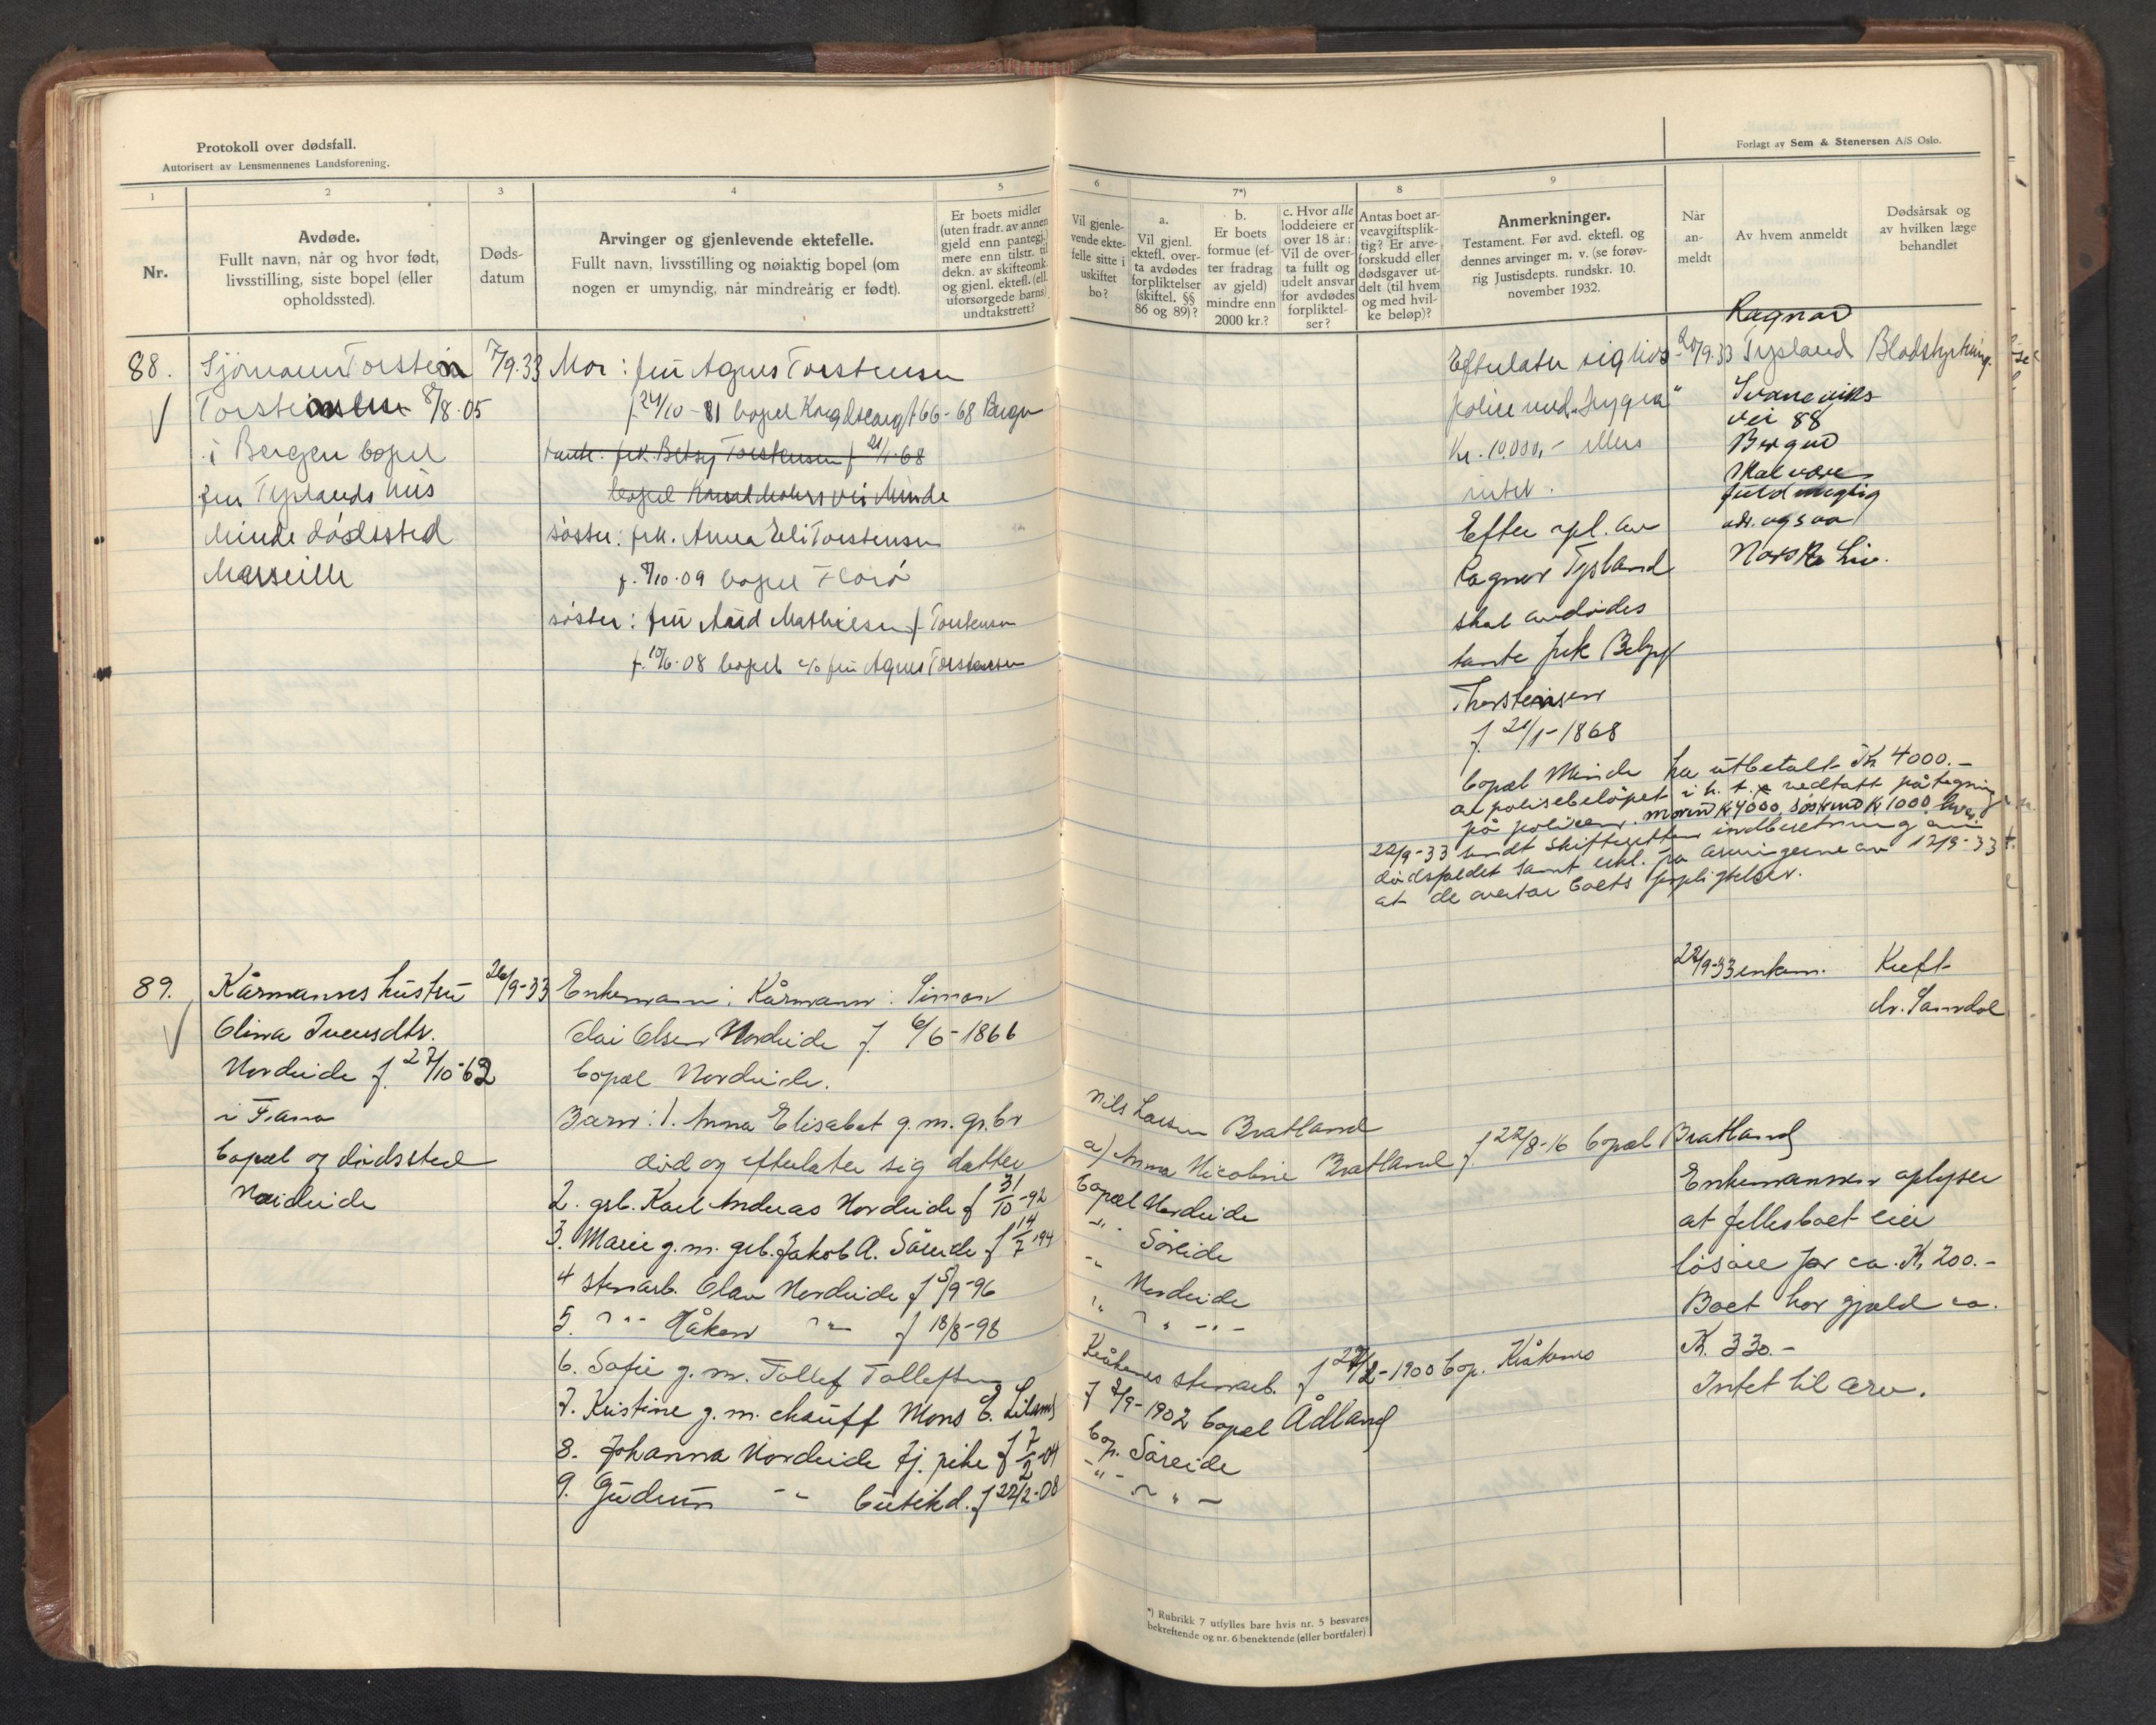 Protokoll over dødsfall.
Autorisert av Lensmennenes Landsforening.
Forlagt av Sem & Stenersen A/S Oslo.
1
2
3
4
5
6
7*)
8
9
Nr.
Avdøde.
Fullt navn, når og hvor født,
livsstilling, siste bopel (eller
opholdssted).
Døds-
datum
Arvinger og gjenlevende ektefelle.
Fullt navn, livsstilling og nøiaktig bopel (om
nogen er umyndig, når mindreårig er født).
Er boets midler
(uten fradr. av annen
gjeld enn pantegj.)
mere enn tilstr. til
dekn. av skifteomk.
og gjenl. ektef. (ell.
uforsørgede barns)
undtakstrett?
Vil gjenle-
vende ekte-
felle sitte i
uskiftet
bo?
a.
Vil gjenl.
ektefl. over-
ta avdødes
forpliktelser
(skiftel. §§
86 og 89)?
b.
Er boets
formue (ef-
ter fradrag
av gjeld)
mindre enn
2000 kr.?
c. Hvor alle
loddeiere er
over 18 år:
Vil de over-
ta fullt og
udelt ansvar
for avdødes
forpliktel-
ser?
Antas boet ar-
veavgiftsplik-
tig? Er arve-
forskudd eller
dødsgaver ut-
delt (til hvem
og med hvil-
ke beløp)?
Anmerkninger.
Testament. Før avd. ektefl. og
dennes arvinger m. v. (se forøv-
rig Justisdepts. rundskr. 10.
november 1932.
Når
an-
meldt
Av hvem anmeldt
Dødsårsak og
av hvilken læge
behandlet
88.
Sjömann Torstein
Torstensen 8/8.05
i Bergen bopel
fru Tyslands hus
Minde dødssted
Marseille
7/9.33
Mor: fru Agnes Torstensen
f 24/10-81 bopel 66-68 Bergen
tante: frk. Betsy Torstensen f 21/1-68
bopel vei Minde
søster: frk. Anna Eli Torstensen
f. 8/10.09 bopel Florø
søster: fru Aud Mathiesen f. Torstensen
f. 10/6.08 bopel c/o fru Agnes Torstensen
Efterlater sig livs-
police med "Hygea"
Kr. 10.000,- ellers
intet.
Efter opl. av
Ragnar Tysland
skal avdødes
tante frk Betsy
Thorstensen
f. 21/1-1868
bopæl Minde ha utbetalt Kr 4000.-
av polisebeløpet i h. t. vedtatt påtegning
på policen. moren Kr 4000, søsknd Kr 1000 hver
22/9-33 sendt skifteretten indberetning om
dødsfaldet samt erkl. fra arvingerne av 12/9-33
at de overtar boets forpligtelser.
20/9.33
Ragnar
Tysland
Svaneviks
vei 88
Bergen
skal være
fuldmegtig
adr. ogsaa
Norske Liv.
Blodstyrtning.
89.
Kårmannes hustru
Olina Iversdtr.
Nordeide f. 27/10-62
i Fana
bopæl og dødssted
Nordeide
26/9-33
Enkemann: Kårmann: Simon
Olai Olsen Nordeide f. 6/6-1866
bopæl Nordeide.
Barn: 1. Anna Elisabet g. m. gr.br
Nils Larsen Bratland
død og efterlater sig datter
a) Anna Nicoline Bratland f. 22/8-16 bopæl Bratland
2. grb. Karl Andreas Nordeide f 31/10-92
bopæl Nordeide
3. Marie g. m. grb. Jakob A. Søreide f 14/7 194
-"- Søreide
4 stenarb. Olav Nordeide f 5/9-96
-"- Nordeide
5. -"- Håkon -"- f 18/8-98
-"- -"-
6. Sofie g. m. Tollef Tollefsen
Kråkenes stenarb. f 27/2-1900 bop. Kråkenes
7. Kristine g. m. chauff Mons E. Liland
f 2/9-1902 bopæl Ådland
8. Johanna Nordeide tj. pike f 7/2-04
bop. Søreide
9. Gudrun -"- butikd. f 22/2-08
-"- -"-
22/9-33
enkem.
Kreft
dr. Samdal
Enkemannen oplyser
at fellesboet eier
løsøre for ca. Kr. 200.-
Boet har gjæld ca.
Kr. 330.-
Intet til arv.
*) Rubrikk 7 utfylles bare hvis nr. 5 besvares
bekreftende og nr. 6 benektende (eller bortfaler)